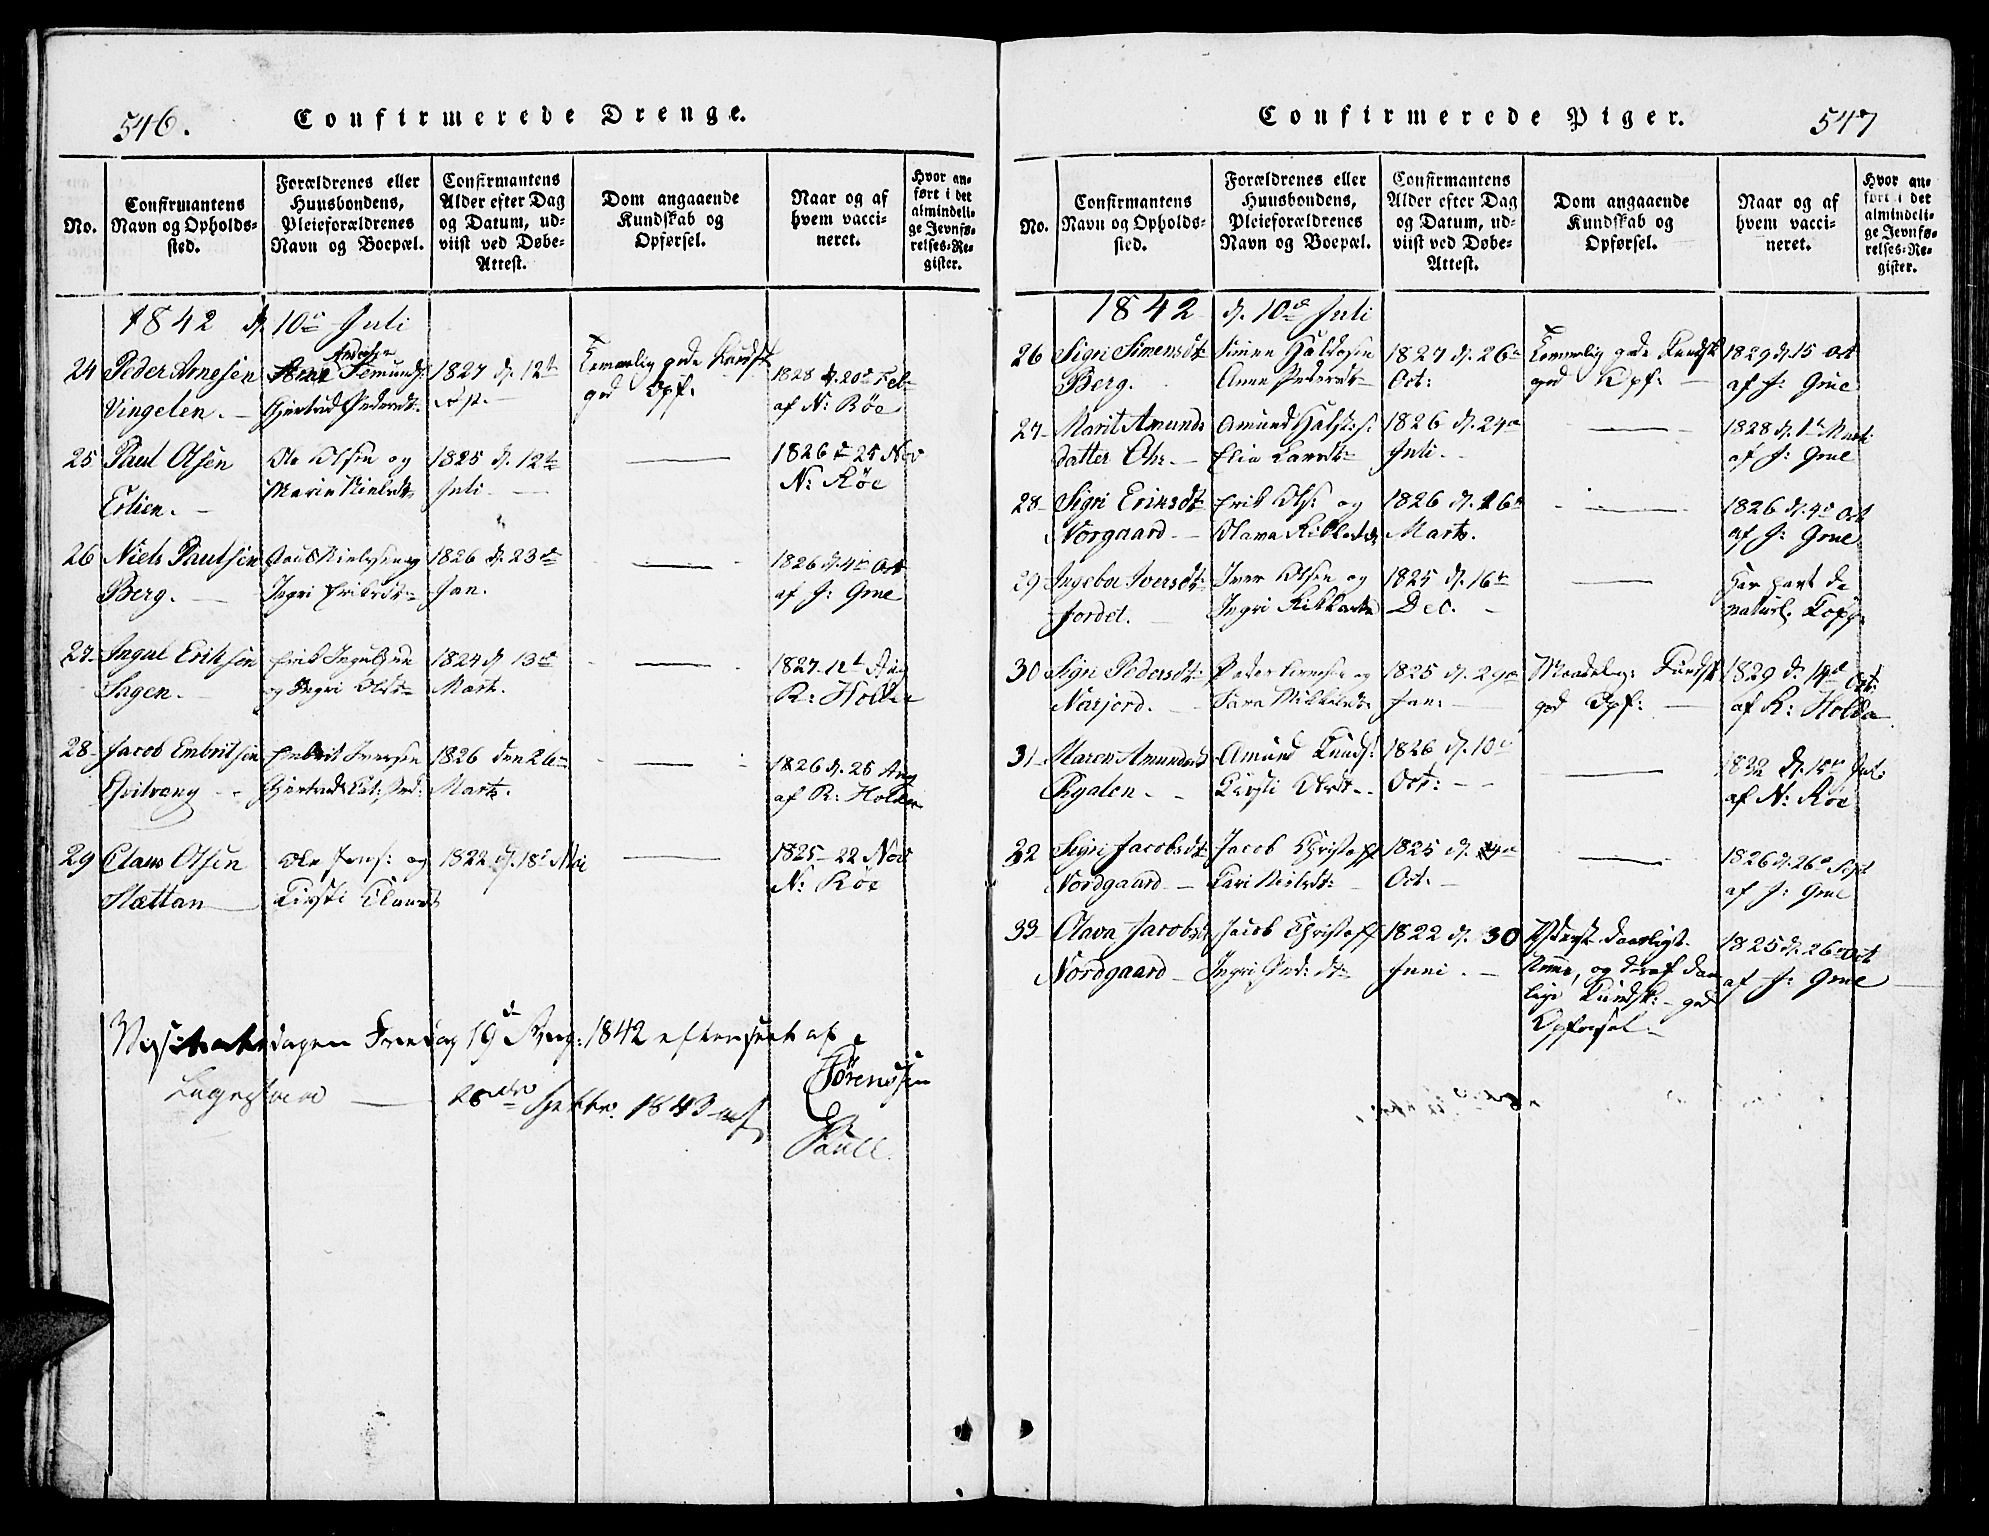 546.
Confirmerede Drenge.
No.
Confirmantens
Navn og Opholds-
sted.
Forældrenes eller
Huusbondens,
Pleieforældrenes
Navn og Boepæl.
Confirmantens
Alder efter Dag
og Datum, ud-
viist ved Døbe-
Attest.
Dom angaaende
Kundskab og
Opførsel.
Naar og af
hvem vacci-
neret.
Hvor an-
ført i det
almindeli-
ge Jevnfø-
relses-Re-
gister.
1842 d. 10de Juli
24 Peder Arnesen
Vingelen.
Gjertrud Pedersdt.
1827 d. 12te
Kundsk.
god Opf.
1828 d. 20de Feb.
af N: Røe
25 Paul Olsen
Erlien.
Ole Olsen og
Marie Nielsdt
1825 d. 12te
Juli.
1826 25 Nov
N: Røe
26 Niels Paulsen
Berg.
Poul Nielsen og
Ingri Eriksdt
1826 d. 23de
Jan.
1826 d. 4de Oct
af J: Grue
27 Ingul Eriksen
Erik Ingulsen
og Ingri Olsdt
1824 d. 13de
Marts.
1827 12t Aug
R: Holden
28 Jacob Embritsen
Embrit Iversen
1826 den 26de
Marts.
1826 d. 25 Aug
af R: Holden
29 Claus Olsen
Slættan
Ole Jens: og
Kirsti Clausdt
1822 d. 18de Mai
1825 22 Nov
N: Røe
Visitatsdagen Fredag 19de Aug: 1842 efterseet af
Sørenssen
28de Septbr. 1843 af
Paull.
Confirmerede Piger.
547
No.
Confirmantens
Navn og Opholds-
sted.
Forældrenes eller
Huusbondens,
Pleieforældrenes
Navn og Boepæl.
Confirmantens
Alder efter Dag
og Datum, ud-
viist ved Døbe-
Attest.
Dom angaaende
Kundskab og
Opførsel.
Naar og af
hvem vacci-
neret.
Hvor an-
ført i det
almindeli-
ge Jevnfø-
relses-Re-
gister.
1842 d. 10de Juli
26 Sigri Simensdt
Berg.
Simen Haldosen
Anne Pedersdt
1827 d. 26de
Oct:
Kundsk
god Opf:
1829 d. 15 Oct
af J: Grue
27 Marit Amunds
datter
Amund Halst:s:
1826 d. 24de
Juli.
1828 d. 1te Marts
af J: Grue
28 Sigri Eriksdt
Norgaard
Erik Ols: og
1826 d. 26de
Marts.
1826 d. 4de Oct
af J: Grue
29 Ingebor Iversdt
Jordet.
Iver Olsen og
Ingri
1825 d. 16de
Dec.
Har havt de
naturl. Kopp.
30 Sigri Pedersdt
Nörjord.
Peder Arnesen og
Sara Mikkelsdt
1825 d. 29de
Jan:
Kundsk
god Opf:
1829 d. 14de Oct:
af R: Holden
31 Maren Amundsdt
Amund Knuds:
Kirsti Olsdt
1826 d. 10de
Oct:
af N: Røe
32 Sigri Jacobsdt
Nordgaard
Jacob Christoff
Kari Nielsdt:
1825 d.
Oct.
1826 d. 26de Sept
af J: Grue
33 Olava Jacobsdt
Nordgaard
Jacob Christoff
Ingri Ped: dt
1822 d. 30
Juni.
Yderst daarligt
Nemme, og deraf daar
lige Kundsk: god
Opførsel.
1825 d. 26de Oct
af J: Grue